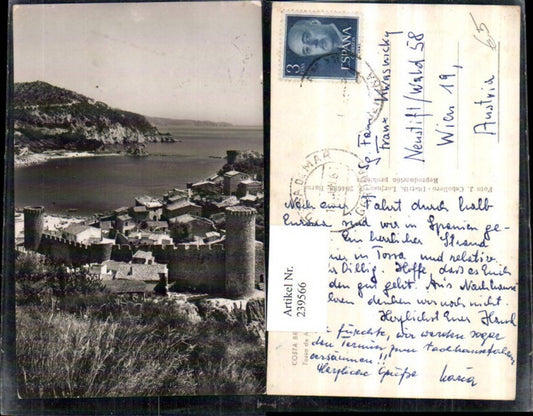 3
ESPAÑA
65
Fam.
Franz Kwasnicky
Neustift/Wald 58
Wien 19,
Austria
Foto J. Caballero
Reproducción prohibida
Nach einer Fahrt durch halb
Europa sind wir in Spanien ge-
Ein herrlicher Strand
in Tossa und relativ
billig. Hoffe, dass es Euch
den gut geht. Ans Nachhause
denken wir noch nicht.
Herzlichst Euer
fürchte, wir werden sogar
den Termin zum Nachhausefahren
versäumen!!
Herzliche Grüße Maria
Artikel Nr.
239566
COSTA BR
Tossa de